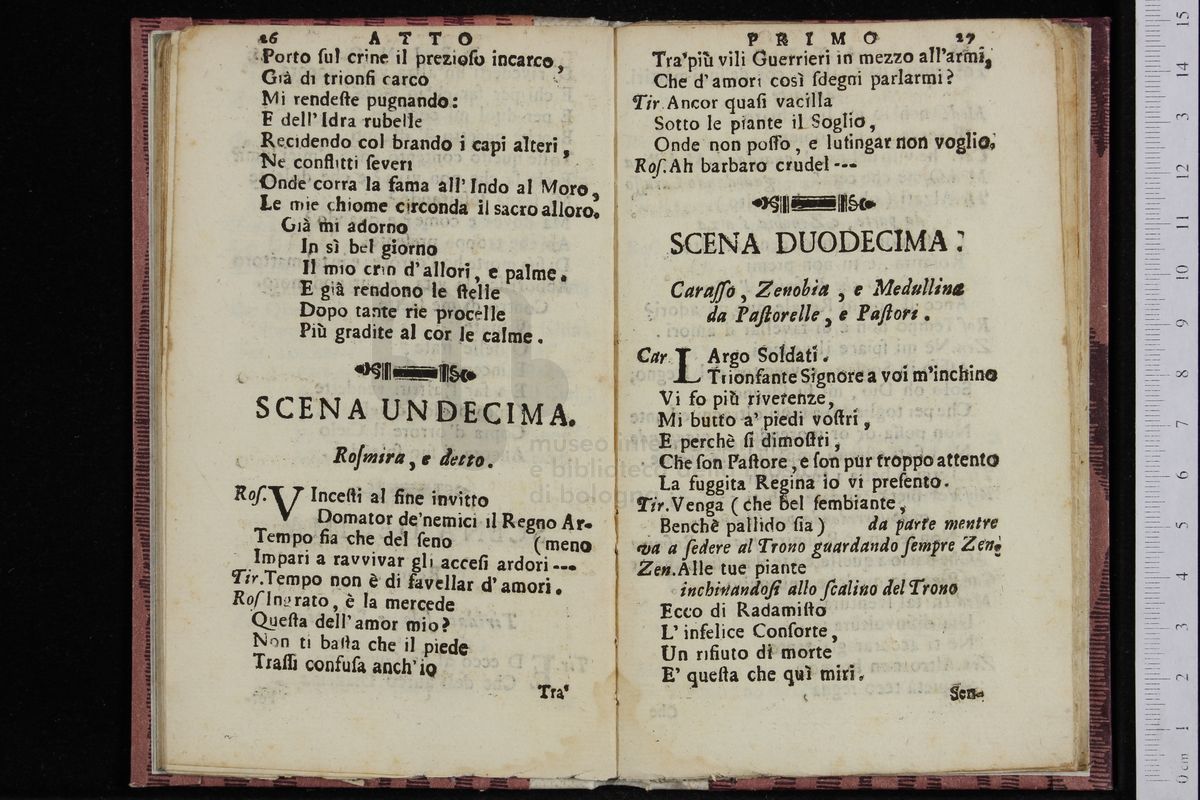 26 ATTO
Porto ſul crine il prezioſo incarco,
Già di trionfi carco
Mi rendeſte pugnando:
E dell'Idra rubelle
Recidendo col brando i capi alteri,
Ne conflitti ſeveri
Onde corra la fama all'Indo al Moro,
Le mie chiome circonda il sacro alloro.
Già mi adorno
In sì bel giorno
Il mio crin d'allori, e palme.
E già rendono le ſtelle
Dopo tante rie procelle
Più gradite al cor le calme.
SCENA UNDECIMA.
Roſmira, e detto.
Roſ. VInceſti al fine invitto
Domator de'nemici il Regno Ar-
Tempo fia che del ſeno (meno
Impari a ravvivar gli acceſi ardori ---
Tir. Tempo non è di favellar d'amori.
Roſ Ingrato, è la mercede
Queſta dell'amor mio?
Non ti baſta che il piede
Traſſi confuſa anch'io
Tra'
PRIMO 27
Tra'più vili Guerrieri in mezzo all'armi,
Che d'amori così ſdegni parlarmi?
Tir. Ancor quaſi vacilla
Sotto le piante il Soglio,
Onde non poſſo, e luſingar non voglio.
Roſ. Ah barbaro crudel ---
SCENA DUODECIMA.
Caraſſo, Zenobia, e Medullina
da Paſtorelle, e Paſtori.
Car LArgo Soldati.
Trionfante Signore a voi m'inchino
Vi fo più riverenze,
Mi butto a' piedi voſtri,
E perchè ſi dimoſtri,
Che ſon Paſtore, e ſon pur troppo attento
La fuggita Regina io vi preſento.
Tir. Venga (che bel ſembiante,
Benchè pallido ſia) da parte mentre
va a ſedere al Trono guardando ſempre Zen.
Zen. Alle tue piante
inchinandoſi allo ſcalino del Trono
Ecco di Radamiſto
L' infelice Conſorte,
Un rifiuto di morte
E' queſta che quì miri.
Sen-
museo inter
e biblioteca
di bologna